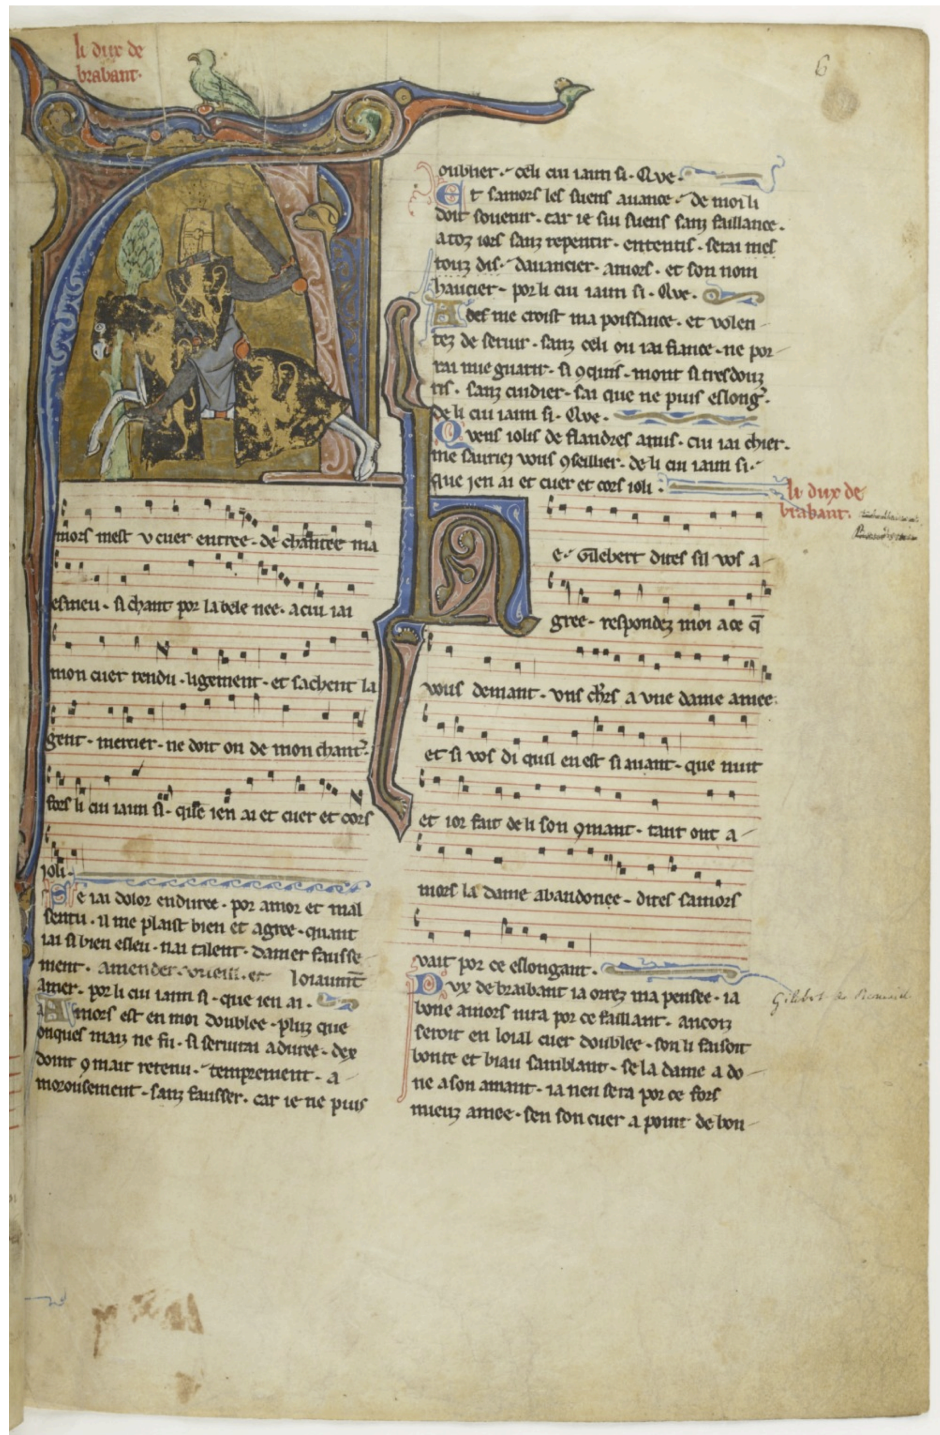 li dux de
brabant.
6
Amors mest v cuer entree. de chanter ma
esmeu. si chant por la bele nee. a cui iai
mon cuer rendu. ligement. et sachent la
gent. mercier. ne doit on de mon chant'.
fors li cui iaim si. que ien ai et cuer et cors
ioli.
Se iai dolor enduree. por amor et mal
sentu. il me plaist bien et agree. quant
iai si bien esleu. nai talent. damer fausse
ment. amender vueill. et loiaumt
amer. por li cui iaim si. que ien ai.
Amors est en moi doublee. pluz que
onques maiz ne fu. si seruirai a duree. dex
doint 9 mait retenu. temprement. a
morousement. sanz fausser. car ie ne puis
oublier. celi cui iaim si. Que.
Et samors les suens auance. de moi li
doit souenir. car ie sui suens sanz faillance.
a toz iors sanz repentir. ententis. serai mes
touz dis. dauancier. amors. et son nom
haucier. por li cui iaim si. Que.
Ades me croist ma poissance. et volen
tez de seruir. sanz celi ou iai fiance. ne por
rai mie guarir. si 9quis. mont si tresdouz
ris. sanz cuidier. sai que ne puis eslong'.
de li cui iaim si. Que.
Quens iolis de flandres amis. cui iai chier.
me sauriez vous 9seillier. de li cui iaim si.
que ien ai et cuer et cors ioli.
li dux de
brabant.
e. Gilebert dites sil vos a
gree. respondez moi a ce q̄
vous demant. vns chrs a vne dame amee.
et si vos di quil en est si auant. que nuit
et ior fait de li son 9mant. tant ont a
mors la dame abandonee. dites samors
vait por ce eslongant.
Dvx de braibant ia orrez ma pensee. ia
bone amors nira por ce faillant. ancoiz
seroit en loial cuer doublee. son li faisoit
bonte et biau samblant. se la dame a do
ne a son amant. ia nen sera por ce fors
mieuz amee. sen son cuer a point de bon